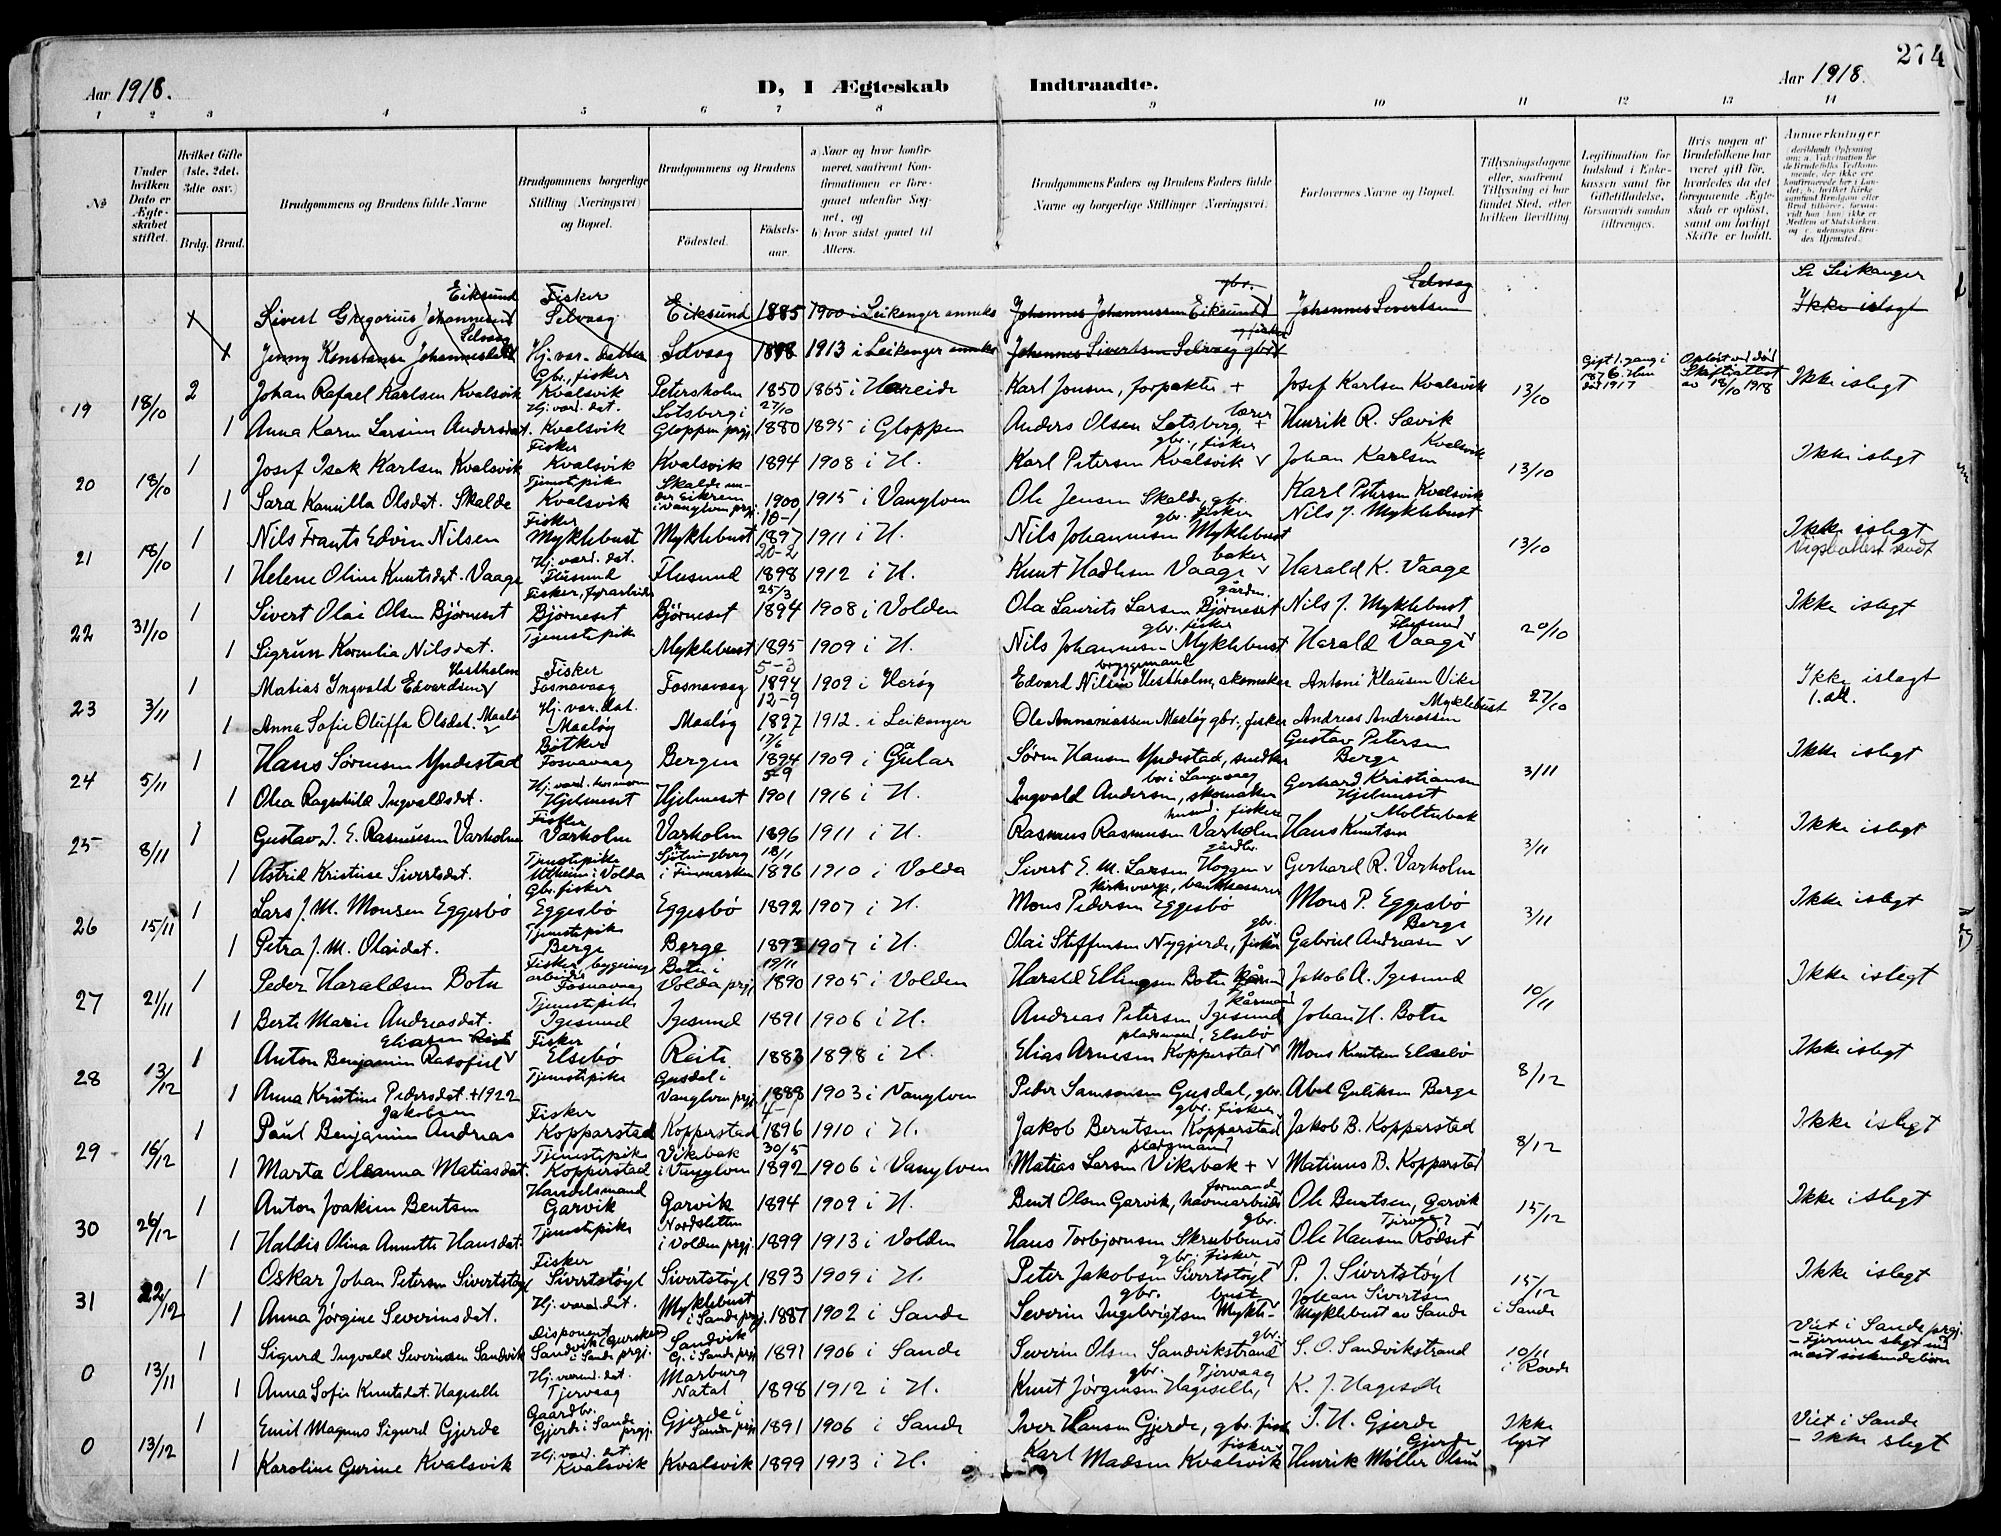 274
Aar 1918.
D, I Ægteskab Indtraadte.
Aar 1918.
1 2 3 4 5 6 7 8 9 10 11 12 13 14
No
Under hvilken Dato er Ægteskabet stiftet.
Hvilket Gifte (1ste, 2det, 3die osv.)
Brdg. Brud.
Brudgommens og Brudens fulde Navne
Brudgommens borgerlige Stilling (Næringsvei) og Bopæl.
Brudgommens og Brudens
Fødested. Fødselsaar.
a) Naar og hvor konfirmeret, saafremt Konfirmationen er foregaaet udenfor Sognet, og
b) hvor sidst gaaet til Alters.
Brudgommens Faders og Brudens Faders fulde Navne og borgerlige Stillinger (Næringsvei)
Forlovernes Navne og Bopæl.
Tillysningsdagene eller, saafremt Tillysning ei har fundet Sted, efter hvilken Bevilling
Legitimation for Indskud i Enkekassen samt for Giftetilladelse, forsaavidt saadan tiltrænges.
Hvis nogen af Brudefolkene har været gift før, hvorledes da det foregaaende Ægteskab er opløst, samt om lovligt Skifte er holdt.
Anmerkninger
Eiksund Fisker gbr. Selvaag Se Leikanger
Sivert Gregorius Johannesen Selvaag Eiksund 1885 1900 i Leikanger anneks Johannes Johannessen Eiksund Johannes Sivertsen Ikke islegt
Jenny Konstanse Johannesdatt Selvaag Hj.var. datter Selvaag 1898 1913 i Leikanger anneks Johannes Sivertsen Selvaag gbr. og fisker
19 18/10 2 Johan Rafael Karlsen Kvalsvik Gbr., fisker Kvalsvik Petersholm 1850 1865 i Hareide Karl Jonsen, forpakter + Josef Karlsen Kvalsvik 13/10 Gift 1. gang i 1876. Hun død 1917 Opløst ved død Skifteattest av 18/10 1918 Ikke islegt
1 Anna Karen Larsine Andersdat. Hj. vard. dat. Kvalsvik Lotsberg i Gloppen prgj. 27/10 1880 1895 i Gloppen Anders Olsen Lotsberg, lærer + Henrik R. Sævik
20 18/10 1 Josef Isak Karlsen Kvalsvik Fisker Kvalsvik Kvalsvik 1894 1908 i H. Karl Petersen Kvalsvik gbr., fisker Johan Karlsen Kvalsvik 13/10 Ikke islegt
1 Sara Kamilla Olsdat. Skalde Tjenestepike Kvalsvik Skalde under Eikrem i Vanylven prgj. 1900 1915 i Vanylven Ole Jensen Skalde, gbr. Karl Petersen Kvalsvik
21 18/10 1 Nils Frants Edvin Nilsen Fisker Myklebust Myklebust 10-1 1897 1911 i H. Nils Johannesen Myklebust gbr. fisker Nils J. Myklebust 13/10 Ikke islegt
1 Helene Oline Knutsdat. Vaage Hj. vard. dat. Flusund Flusund 20-2 1898 1912 i H. Knut Hadlesen Vaage baker Harald K. Vaage
22 31/10 1 Sivert Olai Olsen Bjørneset Fisker, fyrarbeider Bjørneset Bjørneset 25/3 1894 1908 i Volden Ola Laurits Larsen Bjørneset gården. Nils J. Myklebust 20/10 Ikke islegt
1 Sigrun Kornelia Nilsdat. Tjenestepike Myklebust 1895 1909 i H. Nils Johannesen Myklebust gbr. fisker Harald Vaage Flusund
23 3/11 1 Matias Ingvald Edvardsen Hestholm Fisker Fosnavaag Fosnavaag 5-3 1894 1909 i Herøy Edvard Nilsen Hestholm, skomaker byggemand Antoni Klausen Vike 27/10 Ikke islegt
1 Anna Sofie Oluffa Olsdat. Maaløy Hj. var. dat. Maaløy Maaløy 12-9 1897 1912. i Leikanger Ole Annaniassen Maaløy gbr., fisker Andreas Andreassen Myklebust
24 5/11 1 Hans Sørensen Yndestad Bøtker Fosnavaag Bergen 17/6 1894 1909 i Gular Søren Hansen Yndestad, snedker Gustav Petersen Berge 3/11 Ikke islegt
1 Olea Ragnhild Ingvaldsdat. Hjelmeset Hjelmeset 5-9 1901 1916 i H. Ingvald Andersen, skomaker bor i Langevaag Gerhard Kristiansen Hjelmeset
25 8/11 1 Gustav I. E. Rasmussen Varholm Fisker Varholm Varholm 1896 1911 i H. Rasmus Rasmussen Varholm husm. fisker Hans Knutsen Moltubak 3/11 Ikke islegt
1 Astrid Kristine Sivertsdat. Tjenestepike i Volda i Finmarken 18/1 1896 1910 i Volda Sivert E. M. Larsen Hoggen gårdbr. Gerhard R. Varholm
26 15/11 1 Lars J. M. Monsen Eggesbø Gbr. fisker Eggesbø Eggesbø 1892 1907 i H. Mons Pedersen Eggesbø kirkeverge, bankkasserer Mons P. Eggesbø 3/11 Ikke islegt
1 Petra J. M. Olaidat. Tjenestepike Berge Berge 1893 1907 i H. Olai Steffensen Nygjerde, fisker gbr. Gabriel Andreasen Berge
27 21/11 1 Peder Haraldsen Botn Fisker, bygningsarbeider Fosnavaag Botn i Volda prgj. 19/11 1890 1905 i Volden Harald Ellingsen Botn Jakob A. Igesund 10/11 Ikke islegt
1 Berte Marie Andreasdat. Tjenestepike Igesund Igesund 1891 1906 i H. Andreas Petersen Igesund kårmand Johan H. Botn
28 13/12 1 Anton Benjamin Rasofiel Eliassen Fisker Elsebø Reite 1883 1898 i H. Elias Arnesen Kopperstad pladsmand, Elsebø Mons Knutsen Elsebø 8/12 Ikke islegt
1 Anna Kristine Pedersdat. +1922 Tjenestepike Gusdal i Vanylven prgj. 1888 1903 i Vanylven Peder Samsonsen Gusdal, gbr. Abel Guliksen Berge
29 16/12 1 Paul Benjamin Andreas Jakobsen Fisker Kopparstad Kopperstad 4-1 1896 1910 i H. Jakob Berntsen Kopperstad gbr. fisker Jakob B. Kopperstad 8/12 Ikke islegt
1 Marta Oleanna Matiasdat. Tjenestepike Kopperstad Vikebak i Vanylven 30/5 1892 1906 i Vanylven Matias Larsen Vikebak + pladsmand Matinus B. Kopperstad
30 26/12 1 Anton Joakim Bentsen Handelsmand Garvik Garvik 1894 1909 i H. Bent Olsen Garvik, havnearbeids formand Ole Bentsen, Garvik 15/12 Ikke islegt
1 Haldis Olina Annette Hansdat. Tjenestepike Nordsletten i Volden prgj. 1899 1913 i Volden Hans Torbjørnsen Skrubbenes gbr. Ole Hansen Rødset Tjervaag
31 22/12 1 Oskar Johan Petersen Sivertstøyl Fisker Sivertstøyl Sivertstøyl 1893 1909 i H. Peter Jakobsen Sivertstøyl gbr. fisker P. J. Sivertstøyl 15/12 Ikke islegt
1 Anna Jørgine Severinsdat. Hj. vard. dat. Myklebust i Sande prgj. 1887 1902 i Sande Severin Ingebrigtsen Myklebust gbr. Johan Sivertsen Myklebust av Sande i Sande
0 13/11 1 Sigurd Ingvald Severinsen Sandvik Disponent Sandvik i Gursken i Sande prgj. Sandvik G. i Sande prgj. 1891 1906 i Sande Severin Olsen Sandvikstrand gbr. S. O. Sandvikstrand 10/11 i Rovde Viet i Sande prgj. - Fjernere slegt end næst søskendebørn
1 Anna Sofie Knutsdat. Hageselle Hj. vard. dat. Tjervaag Marburg Natal 1898 1912 i H. Knut Jørgensen Hageselle, gbr. Tjervaag K. J. Hageselle
0 13/12 1 Emil Magnus Sigurd Gjerde Gaardbr. Gjerde i Sande prgj. Gjerde i Sande prgj. 1891 1906 i Sande Iver Hansen Gjerde, gbr. fisk I. H. Gjerde Ikke lyst Viet i Sande - Ikke slegt
1 Karoline Gurine Kvalsvik Hj. vard. dat. Kvalsvik Kvalsvik 1899 1913 i H. Karl Madsen Kvalsvik fisker Henrik Møller Olsen Gjerde